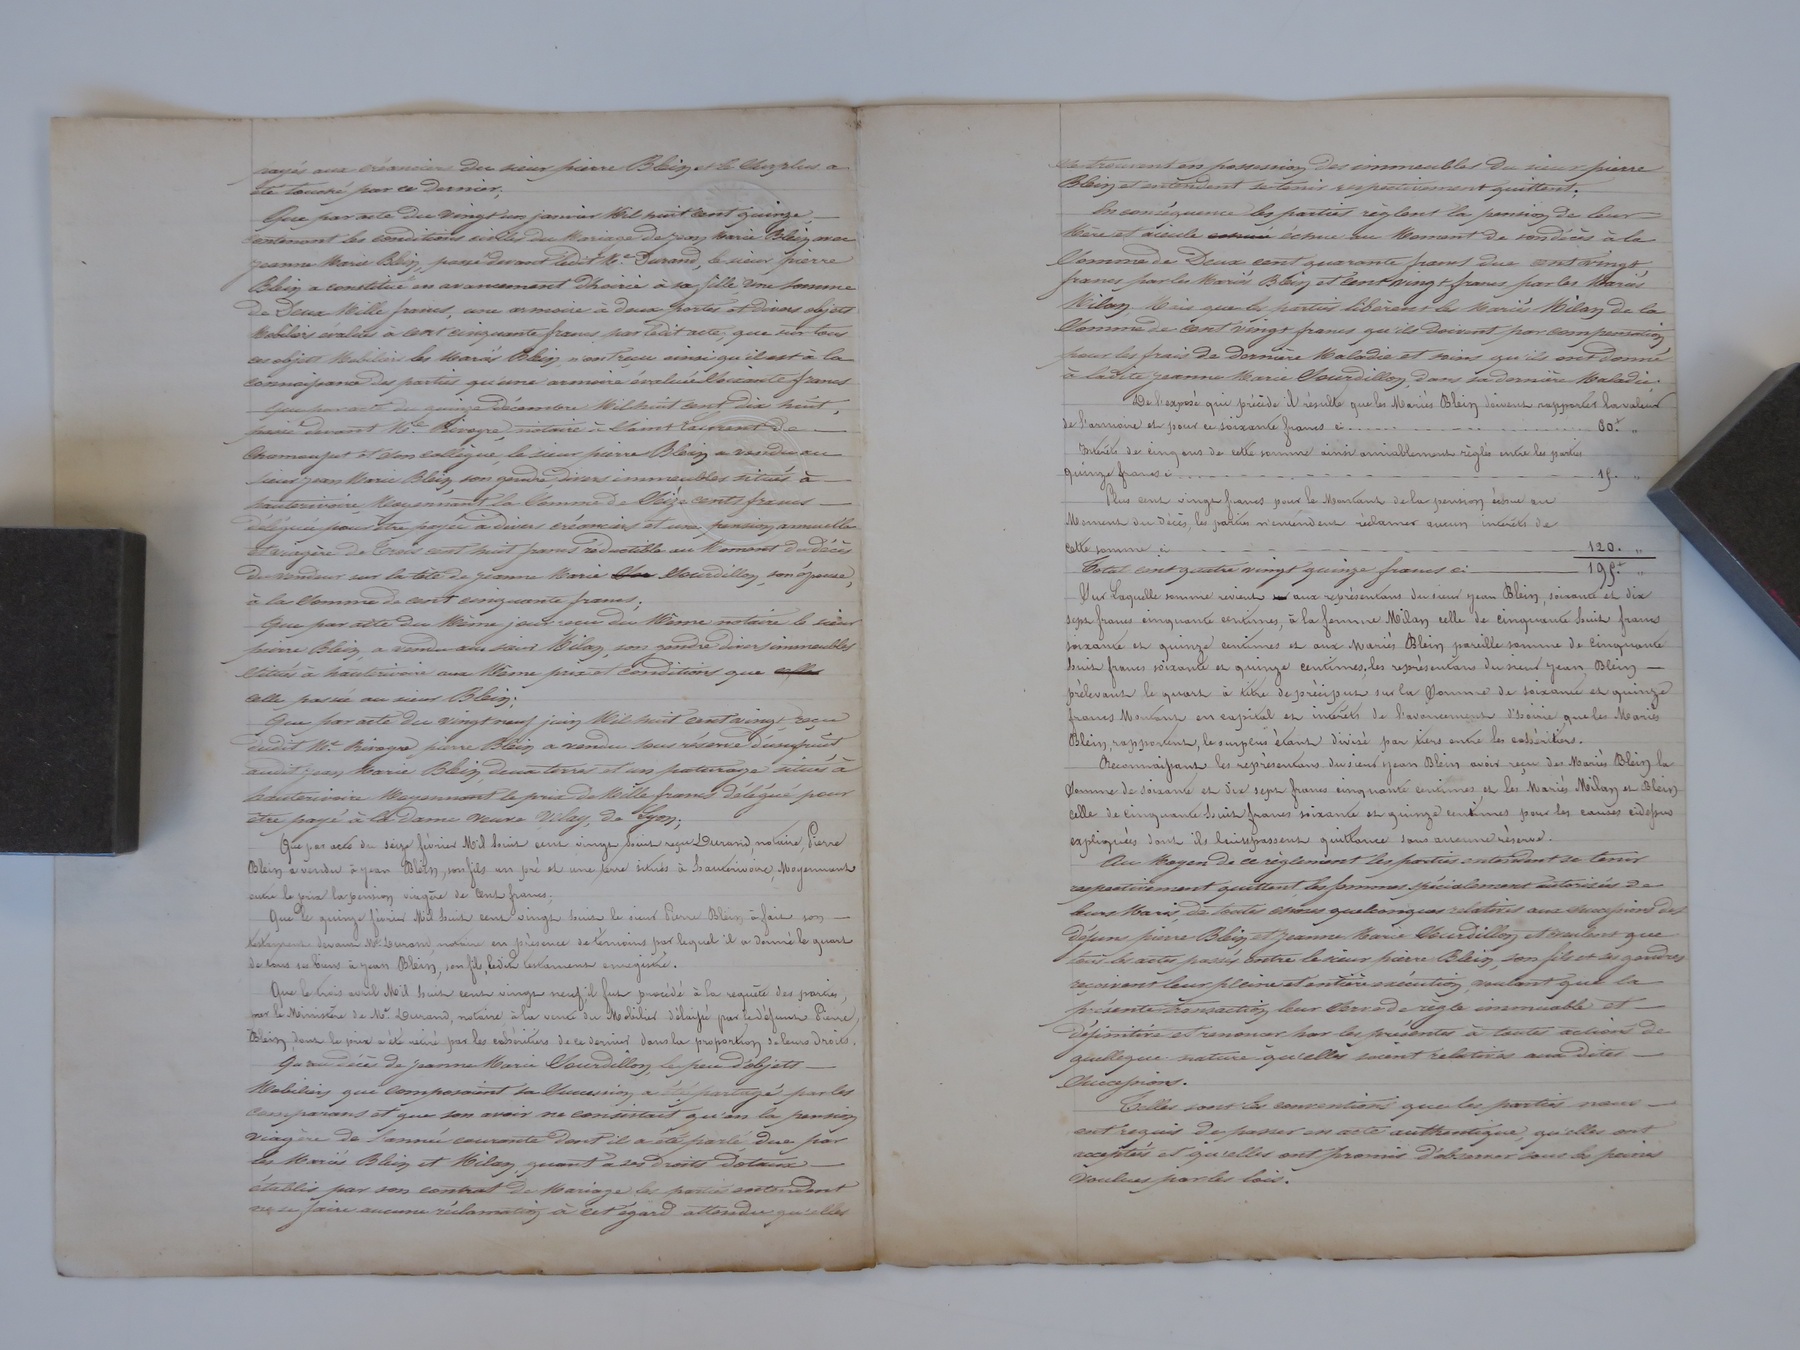 payés aux créanciers du sieur pierre Blein et le Surplus a
été touché par ce dernier;
Que par acte du vingt un janvier Mil huit cent quinze,
contenant les conditions civiles du Mariage de jean Marie Blein avec
jeanne Marie Blein, passé devant ledit Me Durand, le sieur pierre
Blein a constitué en avancement d'hoirie à sa fille, une Somme
de Deux Mille francs, une armoire à deux portes et divers objets
Mobiliers évalués à cent cinquante francs, par ledit acte; que sur tous
ces objets Mobiliers les Mariés Blein, n'ont reçu ainsi qu'il est à la
connaissance des parties qu'une armoire évaluée Soixante francs
Que par acte du quinze Décembre Mil huit cent dix huit,
passé devant Me notaire à Saint Laurent de
Chamousset et son collègue, le sieur pierre Blein a vendu au
sieur jean Marie Blein, son gendre, divers immeubles situés à
hauterivoire Moyennant la Somme de cents francs
déléguée pour être payée à divers créanciers et une pension annuelle
et viagère de Trois cent huit francs réductible au Moment du décès
du vendeur sur la tête de jeanne Marie Sourdillon, son épouse,
à la Somme de cent cinquante francs;
Que par acte du Même jour reçu du Même notaire le sieur
pierre Blein, a vendu au sieur Milan, son gendre divers immeubles
Situés à hauterivoire aux Même prix et conditions que celles
celle passée au sieur Blein;
Que par acte du vingt neuf juin Mil huit cent vingt, reçu
dudit Me pierre Blein a vendu sous réserve d'usufruit
audit jean Marie Blein deux terres et un paturage situés à
hauterivoire Moyennant le prix de Mille francs délégué pour
être payé à la dame veuve de Lyon;
Que par acte du seize février Mil huit cent vingt huit reçu Durand, notaire, Pierre
Blein a vendu à jean Blein, son fils un pré et une terre situés à hauterivoire, Moyennant
outre le prix la pension viagère de Cent francs.
Que le quinze février Mil huit cent vingt huit le sieur Pierre Blein à fait son
testament devant Me Durand, notaire en présence de témoins par lequel il a donné le quart
de tous ses biens à jean Blein, son fils, ledit testament enregistré.
Que le trois avril Mil huit cent vingt neuf, il fut procédé à la requête des parties,
par le Ministère de Me Durand, notaire à la vente du Mobilier délaissé par le défunt Pierre
Blein, dont le prix a été retiré par les cohéritiers de ce dernier dans la proportion de leurs droits.
Qu'au décès de jeanne Marie Sourdillon, le peu d'objets
Mobiliers que composaient sa Succession a été partagé par les
comparans et que son avoir ne consistait qu'en la pension
viagère de l'année courante dont il a été parlé due par
les Mariés Blein et Milan, quant à ses droits dotaux
établis par son contrat de Mariage les parties entendent
ne se faire aucune réclamation à cet égard attendu qu'elles
se trouvent en possession des immeubles du sieur pierre
Blein et entendent se tenir respectivement quittent.
En conséquence les parties règlent la pension de leur
Mère et aieule échue au Moment de son décès à la
Somme de Deux cent quarante francs due cent vingt
francs par les Mariés Blein et cent vingt francs par les Mariés
Milan, Mais que les parties libèrent les Mariés Milan de la
Somme de cent vingt francs qu'ils doivent par compensation
pour les frais de dernière Maladie et soins qu'ils ont donné
à ladite jeanne Marie Sourdillon, dans sa dernière Maladie;
De l'exposé qui précède il résulte que les Mariés Blein doivent rapporter la valeur
de l'armoire est pour ce soixante francs ci 60.f "
Intérêts de cinq ans de cette somme ainsi amiablement réglés entre les parties
quinze francs ci 15. "
Plus cent vingt francs pour le Montant de la pension échue au
Moment du décès, les parties n'entendent réclamer aucun intérêts de
cette somme ci 120. "
Total cent quatre vingt quinze francs ci 195.f "
Sur Laquelle somme revient aux représentans du sieur jean Blein, soixante et dix
sept francs cinquante centimes, à la femme Milan celle de cinquante huit francs
soixante et quinze centimes et aux Mariés Blein pareille somme de cinquante
huit francs soixante et quinze centimes, les représentans du sieur jean Blein
prélevant le quart à titre de préciput sur la Somme de soixante et quinze
francs Montant en capital et intérêts de l'avancement d'hoirie que les Mariés
Blein, rapportent, le surplus étant divisé par tiers entre les cohéritiers.
Reconnaissant les représentans du sieur jean Blein avoir reçu des Mariés Blein la
Somme de soixante et dix sept francs cinquante centimes et les Mariés Milan et Blein
celle de cinquante huit francs soixante et quinze centimes pour les causes cidessus
expliquées dont ils leur passent quittance sans aucune réserve.
Au Moyen de ce règlement les parties entendent se tenir
respectivement quittent, les femmes spécialement autorisées de
leurs Maris de toutes choses quelconques relatives aux successions des
défun pierre Blein et jeanne Marie Sourdillon et veulent que
tous les actes passés entre le sieur pierre Blein, son fils et ses gendres
reçoivent leur pleine et entière exécution, voulant que la
présente transaction leur Serve de règle immuable et
définitive et renoncer par les présentes à toutes actions de
quelleque nature qu'elles soient relatives aux dites
Successions.
Telles sont les conventions que les parties nous
ont requis de passer en acte authentique, qu'elles ont
acceptés et qu'elles ont promis d'observer sous les peines
voulues par les lois.